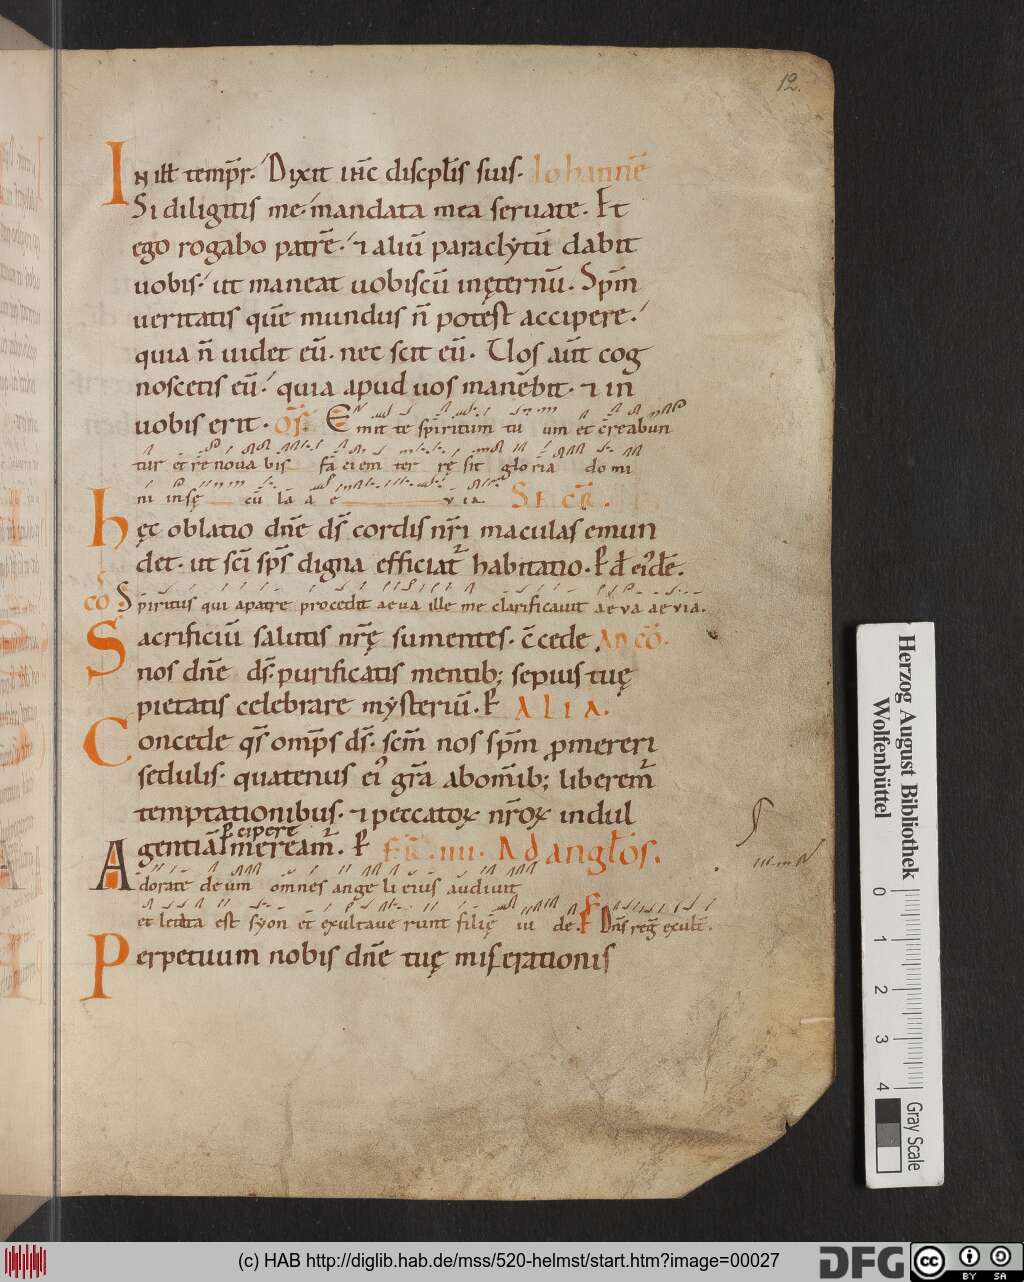 12.
In ill̄ temp̄r. Dixit ih̄c discpl̄is suis. Iohannē
Si diligitis me. mandata mea seruate. Et
ego rogabo patrē. ⁊ aliū paraclẏtū dabit
uobis. ut maneat uobiscū inęternū. Sp̄m
ueritatis quē mundus n̄ potest accipere.
quia n̄ uidet eū. nec scit eū. Uos aūt cog
noscetis eū. quia apud uos manēbit. ⁊ in
uobis erit. OF̄. Emit te spiritum tu um et creabun
tur et re noua bis fa ciem ter rę sit glo ria do mi
ni in sę cū la a e v ia. SECR̄.
hęc oblatio dn̄e ds̄ cordis nr̄i maculas emun
det. ut sc̄i sp̄s digna efficiat᷑ habitatio. P̄ d̄ eid̄e.
CŌ. Spiritus qui apatre procedit aeua ille me clarificauit aeva aevia.
Sacrificiū salutis nr̄ę sumentes. c̄cede AD CŌ.
nos dn̄e ds̄. purificatis mentib; sepius tuę
pietatis celebrare mẏsteriū. P̄ ALIA.
Concede qs̄ omp̄s ds̄. sc̄m nos sp̄m ꝓmereri
sedulis. quatenus ei᷒ gr̄a abom̄ib; liberem᷑
temptationibus. ⁊ peccatoꝝ nr̄oꝝ indul
p̄cipere
gentiā meream᷑. P̄ FR̄. IIII. Ad anglōs.
Adorate deum omnes ange li eius audiuit
et letata est syon et exultaue runt filię iu dę. P̄ Dn̄s reḡ exult̄.
Perpetuum nobis dn̄e tuę miserationis
Herzog August Bibliothek
Wolfenbüttel
0 1 2 3 4
Gray Scale
(c) HAB http://diglib.hab.de/mss/520-helmst/start.htm?image=00027
DFG
cc BY SA